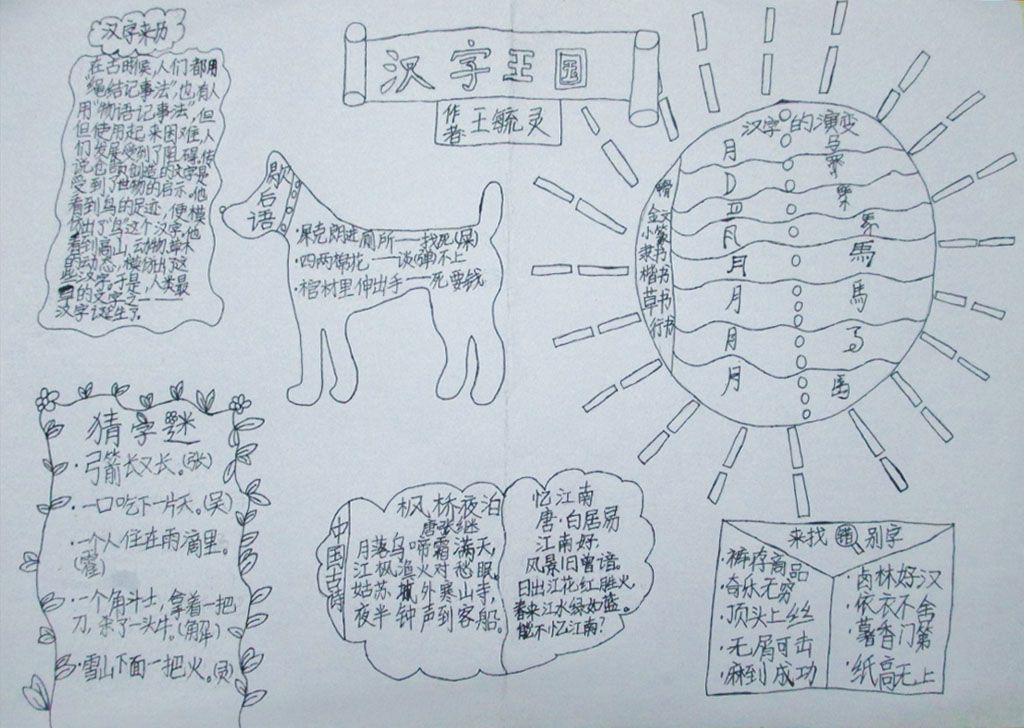 汉字王国
作者:王毓灵
汉字来历
在古时候,人们都用
"绳结记事法",也有人
用"物语记事法",但
但使用起来困难,人
们发展受到了阻碍。传
说仓颉创造的文字是
受到了世物的启示。他
看到鸟的足迹,便模
仿出了"鸟"这个汉字,他
看到高山、动物、草木
的动态,模仿出了这
些汉字,于是,人类最
早的文字之一——
汉字诞生了。
歇后语
·屎克郎进厕所——找死(屎)
·四两棉花——谈(弹)不上
·棺材里伸出手——死要钱
汉字的演变
金文
小篆
隶书
楷书
草书
行书
月
月
月
月
月
月
馬
馬
马
猜字谜
·弓箭长又长。(张)
·一口吃下一片天。(吴)
·一个人住在雨滴里。
(霍)
·一个角斗士,拿着一把
刀,杀了一头牛。(解)
·雪山下面一把火。(灵)
中国古诗
枫桥夜泊
唐张继
月落乌啼霜满天,
江枫渔火对愁眠。
姑苏城外寒山寺,
夜半钟声到客船。
忆江南
唐·白居易
江南好
风景旧曾谙。
日出江花红胜火
春来江水绿如蓝。
能不忆江南?
来找错别字
·裤存商品
·奇乐无穷
·顶头上丝
·无屑可击
·麻到成功
·卤林好汉
·依衣不舍
·薯香门第
·纸高无上